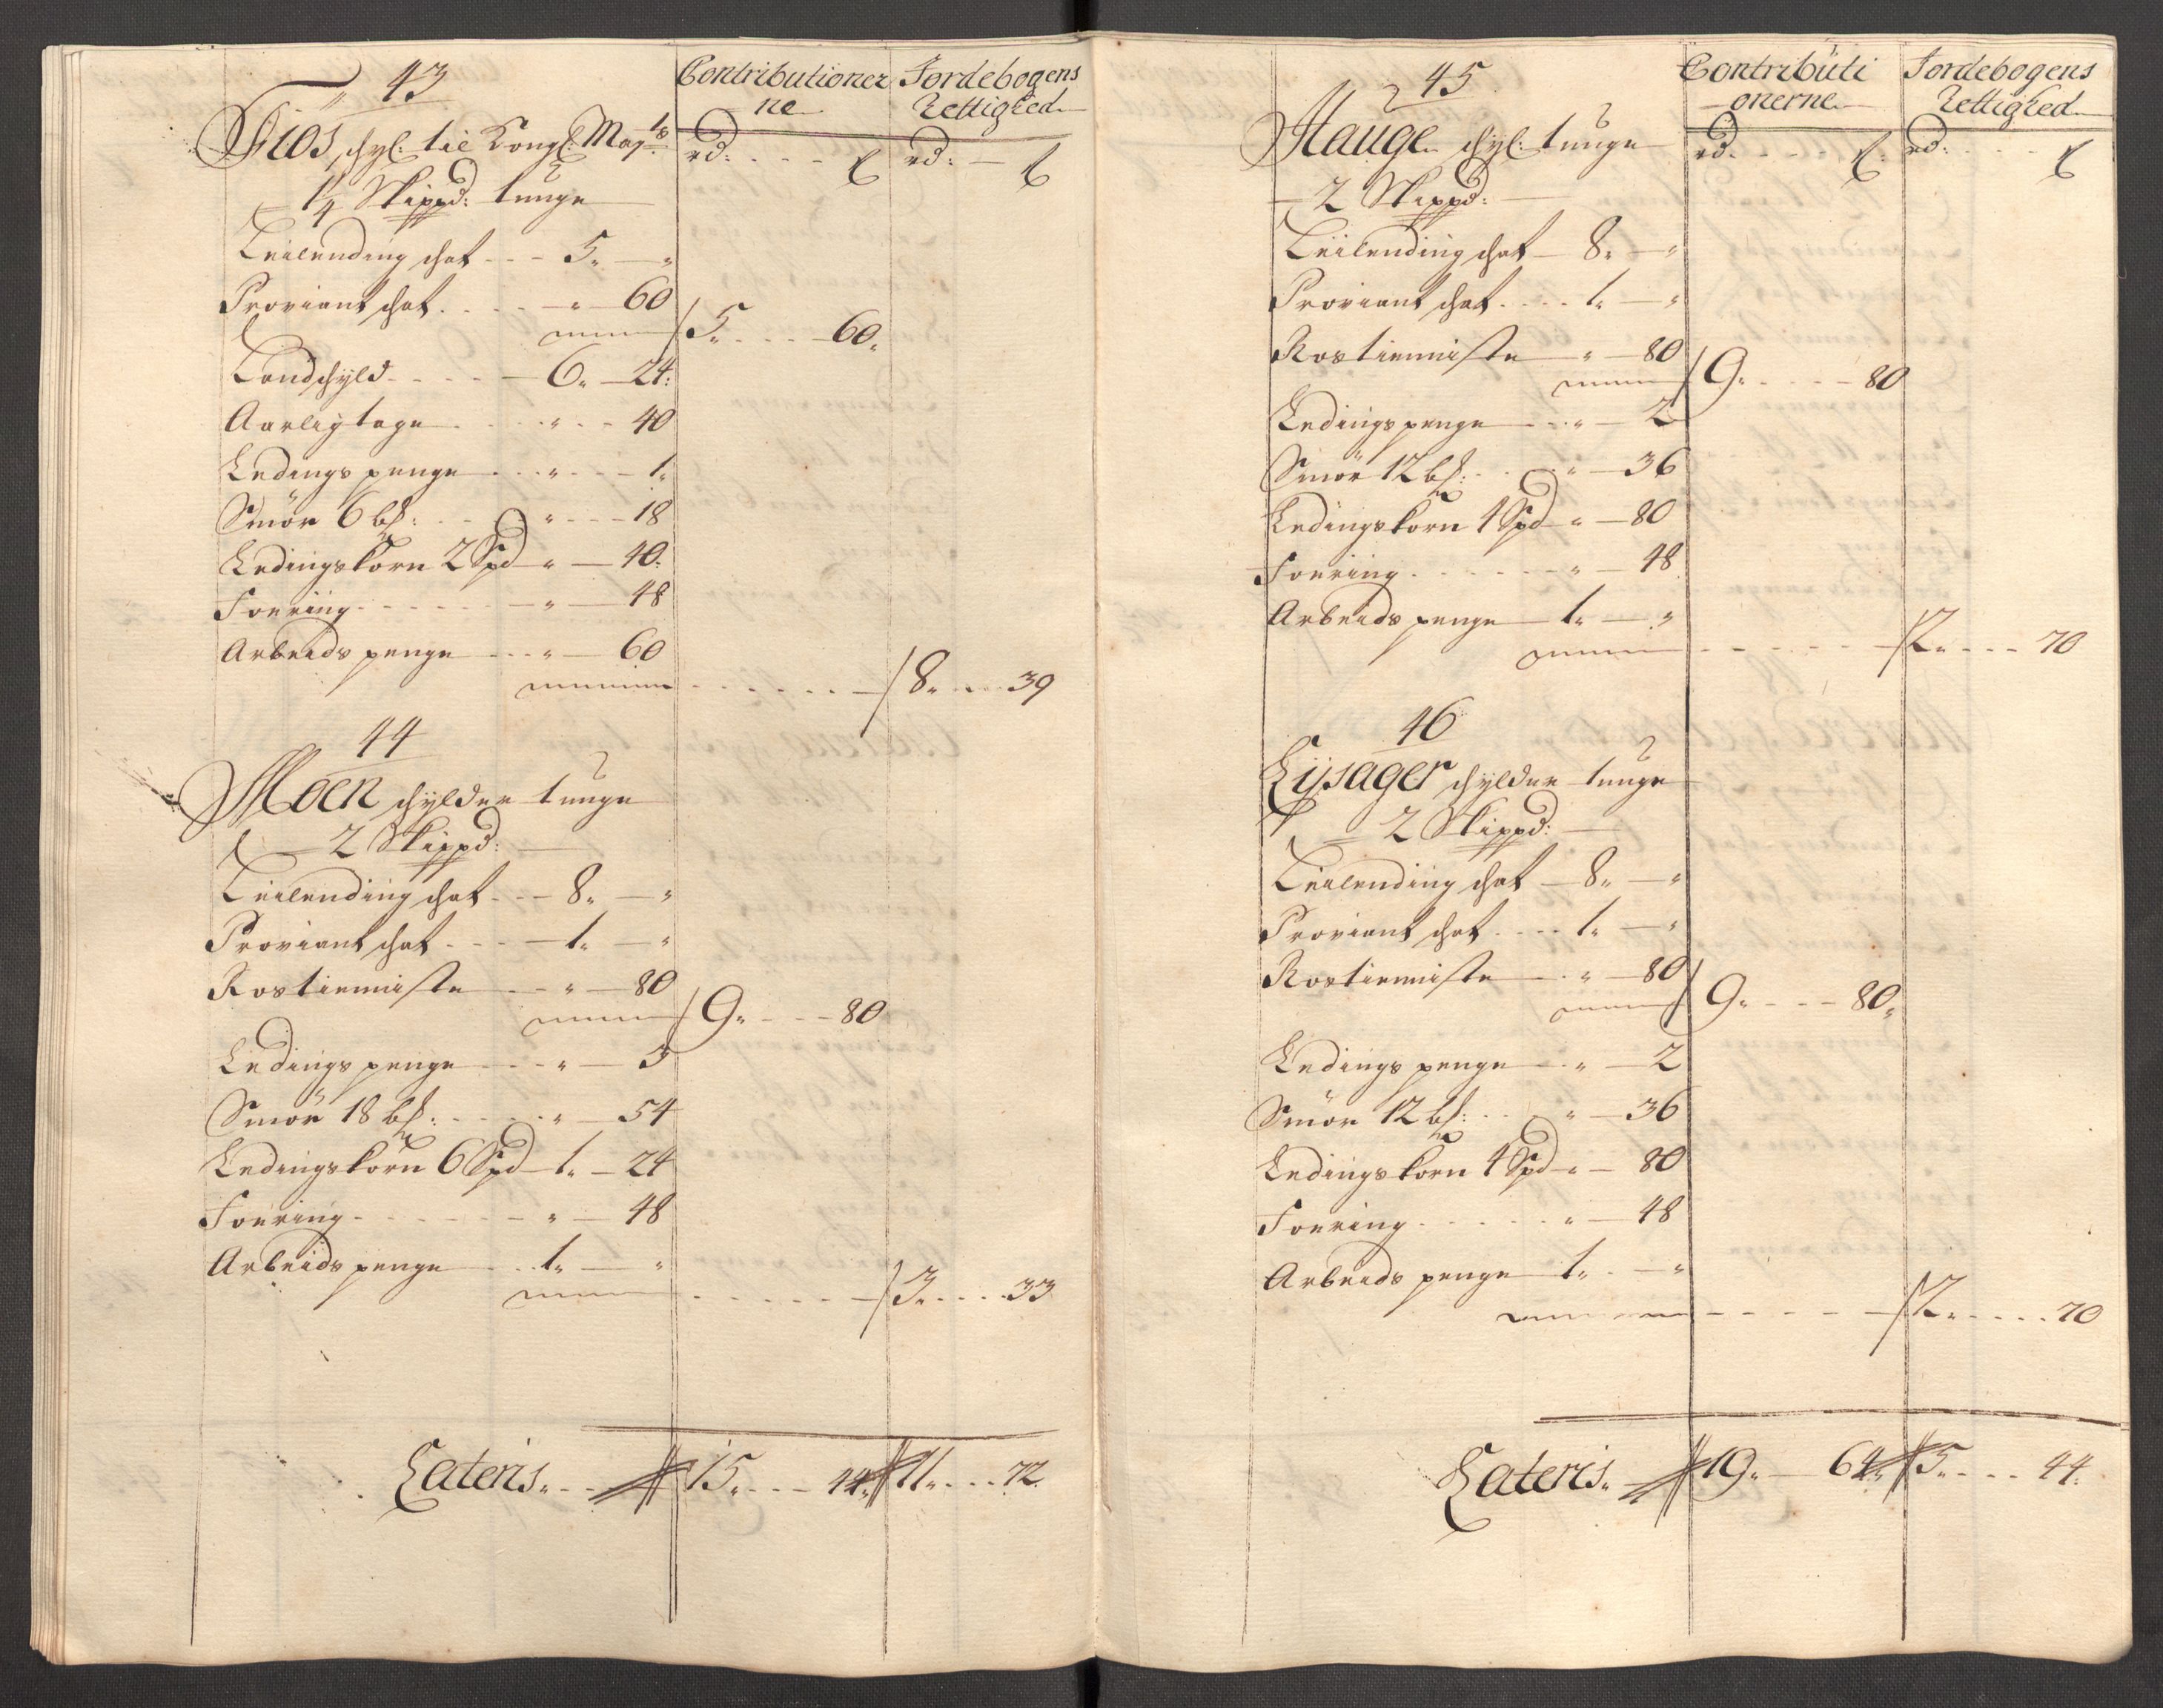 Contributioner
ne
Jordebogens
Rettighed
rd: ß rd: ß
43
Fios schyl: til Kongl: Mayts
1 1/4 Skippd: tunge
Leilending schat - - - 5. — "
Proviant schat - - - " — 60
5. - - - 60.
Landschyld - - - - 6. — 24:
Aarlig tage - - - " - - 40
Ledings penge - - " - - 1.
Smör 6 bs: - - " - - 18
Ledings korn 2 Spd " — 40.
Foering - - - - - " — 48
Arbeids penge - - " — 60
8. - - - 39
44
Moen schylder tunge
2 Skippd:
Leilending schat - - 8. — "
Proviant schat - - - 1. — "
Rostieniste - - " — 80
9. - - - 80
Ledings penge - - " — 3
Smör 18 bs: - - - " — 54
Ledings korn 6 Spd 1. — 24
Foering - - - - - " — 48
Arbeids penge - - 1. — "
3. - - - 33
Lateris. - - 15. - - - 44. 11. - - - 72.
Contributi
onerne
Jordebogens
Rettighed
rd: ß rd: ß
45
Hauge schyl: tunge
2 Skippd:
Leilending schat — 8. — "
Proviant schat - - - 1. — "
Rostieniste " — 80
9. - - - 80
Ledings penge - - " — 2
Smör 12 bs: - - " — 36
Ledings korn 4 Spd " — 80
Foering - - - - - " — 48
Arbeids penge 1. — "
2. - - - 70
46
Lysager schylder tunge
2 Skippd:
Leilending schat — 8. — "
Proviant schat - - - 1. — "
Rostieniste - " — 80
9. - - - 80.
Ledings penge - " — 2
Smör 12 bs: - - " — 36
Ledings korn 4 Spd " — 80
Foering - - - - - " — 48
Arbeids penge 1. — "
2. - - - 70
Lateris. 19. — 64. 5. - - - 44.